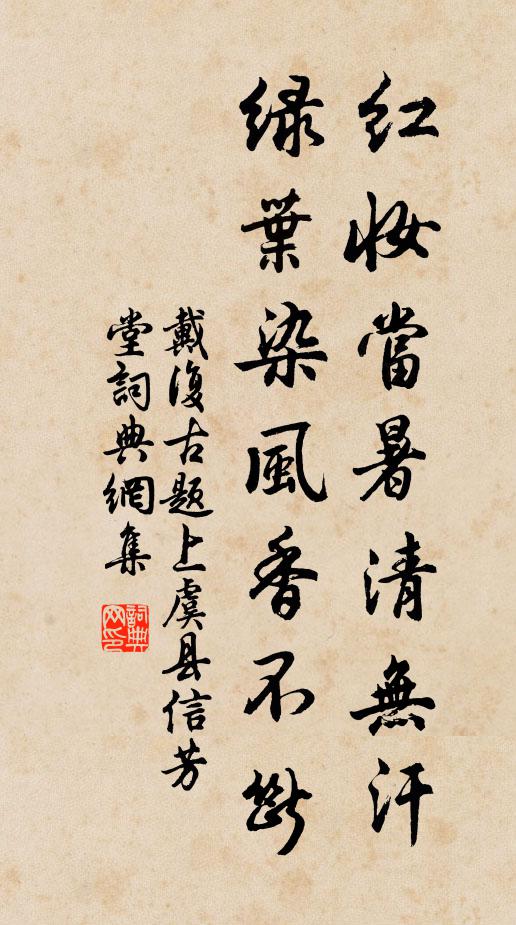 红妆當暑清無汗
绿葉染風香不斷
戴復古题上虞县信芳
堂詞典網集
詞典網印